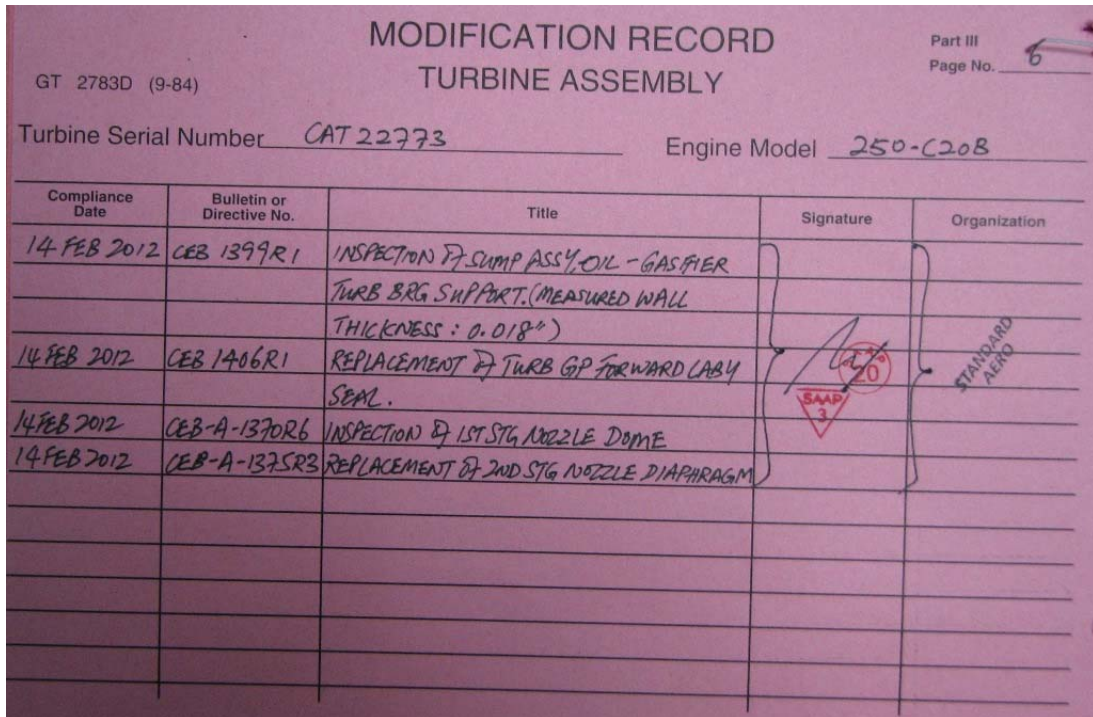 MODIFICATION RECORD
TURBINE ASSEMBLY
Part III
Page No. 6
GT 2783D (9-84)
Turbine Serial Number CAT 22773
Engine Model 250-C20B
Compliance Date
Bulletin or Directive No.
Title
Signature
Organization
14 FEB 2012 CEB 1399R1 INSPECTION OF SUMP ASSY, OIL - GASIFIER
TURB BRG SUPPORT. (MEASURED WALL
THICKNESS : 0.018")
14 FEB 2012 CEB 1406R1 REPLACEMENT OF TURB GP FORWARD LABY
SEAL.
14 FEB 2012 CEB-A-1370R6 INSPECTION OF 1ST STG NOZZLE DOME
14 FEB 2012 CEB-A-1375R3 REPLACEMENT OF 2ND STG NOZZLE DIAPHRAGM
20
SAAP
3
STANDARD
AERO